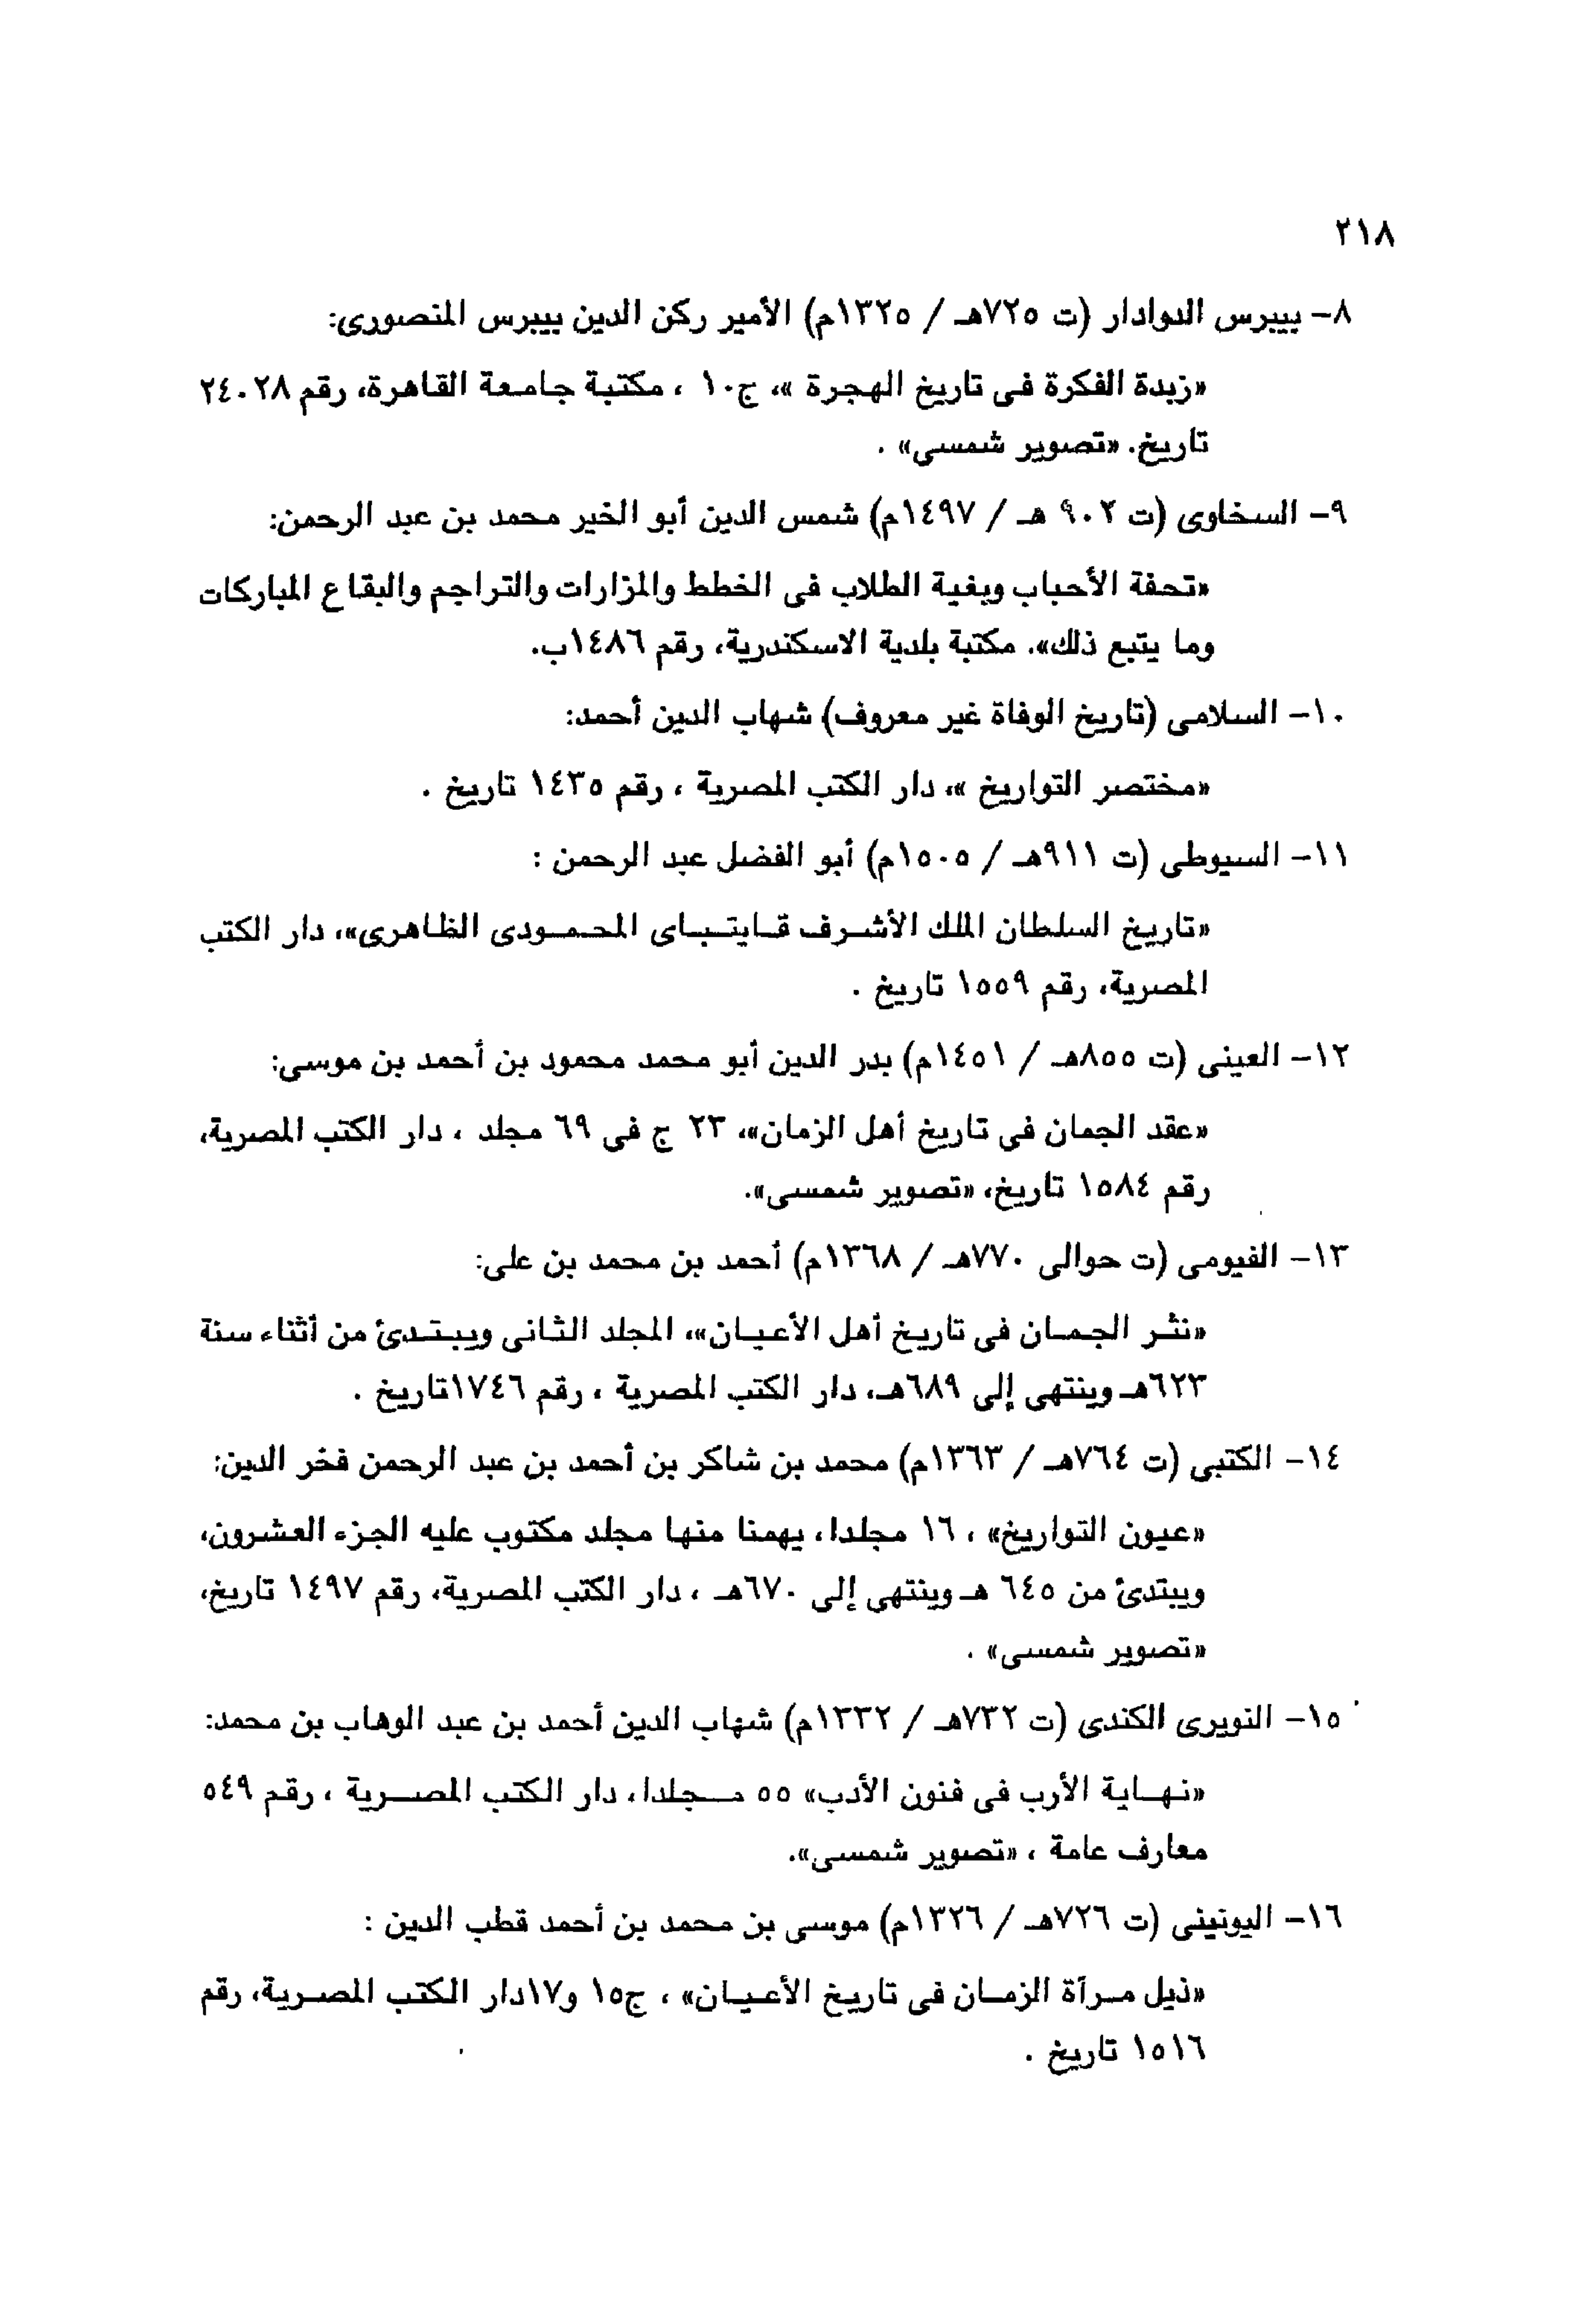 ٢١٨
٨- بيبرس الدوادار (ت ٧٢٥هـ / ١٣٢٥م) الأمير ركن الدين بيبرس المنصورى:
«زبدة الفكرة فى تاريخ الهجرة »، ج١٠ ، مكتبة جامعة القاهرة، رقم ٢٤٠٢٨
تاريخ. «تصوير شمسى» .
٩- السخاوى (ت ٩٠٢ هـ / ١٤٩٧م) شمس الدين أبو الخير محمد بن عبد الرحمن:
«تحفة الأحباب وبغية الطلاب فى الخطط والمزارات والتراجم والبقاع المباركات
وما يتبع ذلك». مكتبة بلدية الاسكندرية، رقم ١٤٨٦ب.
١٠- السلامى (تاريخ الوفاة غير معروف) شهاب الدين أحمد:
«مختصر التواريخ »، دار الكتب المصرية ، رقم ١٤٣٥ تاريخ .
١١- السيوطى (ت ٩١١هـ / ١٥٠٥م) أبو الفضل عبد الرحمن :
«تاريخ السلطان الملك الأشرف قايتباى المحمودى الظاهرى»، دار الكتب
المصرية، رقم ١٥٥٩ تاريخ .
١٢- العينى (ت ٨٥٥هـ / ١٤٥١م) بدر الدين أبو محمد محمود بن أحمد بن موسى:
«عقد الجمان فى تاريخ أهل الزمان»، ٢٣ ج فى ٦٩ مجلد ، دار الكتب المصرية،
رقم ١٥٨٤ تاريخ، «تصوير شمسى».
١٣- الفيومى (ت حوالى ٧٧٠هـ / ١٣٦٨م) أحمد بن محمد بن على:
«نثر الجمان فى تاريخ أهل الأعيان»، المجلد الثانى ويبتدئ من أثناء سنة
٦٢٣هـ وينتهى إلى ٦٨٩هـ، دار الكتب المصرية ، رقم ١٧٤٦تاريخ .
١٤- الكتبى (ت ٧٦٤هـ / ١٣٦٣م) محمد بن شاكر بن أحمد بن عبد الرحمن فخر الدين:
«عيون التواريخ» ، ١٦ مجلدا، يهمنا منها مجلد مكتوب عليه الجزء العشرون،
ويبتدئ من ٦٤٥ هـ وينتهى إلى ٦٧٠هـ ، دار الكتب المصرية، رقم ١٤٩٧ تاريخ،
«تصوير شمسى» .
١٥- النويرى الكندى (ت ٧٣٢هـ / ١٣٣٢م) شهاب الدين أحمد بن عبد الوهاب بن محمد:
«نهاية الأرب فى فنون الأدب» ٥٥ مجلدا، دار الكتب المصرية ، رقم ٥٤٩
معارف عامة ، «تصوير شمسى».
١٦- اليونينى (ت ٧٢٦هـ / ١٣٢٦م) موسى بن محمد بن أحمد قطب الدين :
«ذيل مرآة الزمان فى تاريخ الأعيان» ، ج١٥ و١٧دار الكتب المصرية، رقم
١٥١٦ تاريخ .